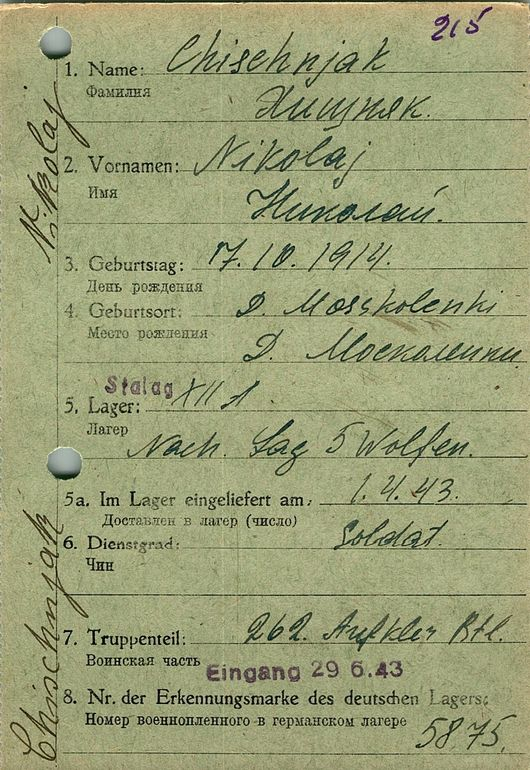 215
1. Name: Chischnjak
Фамилия
Хищняк.
2. Vornamen: Nikolaj
Имя
Николай.
3. Geburtstag: 17. 10. 1914.
День рождения
4. Geburtsort: D. Moskolenki
Место рождения
Д. Москаленки
Stalag XII A
5. Lager:
Лагерь
Nach. Lag 5 Wolfen.
5a. Im Lager eingeliefert am: 1. 4. 43.
Доставлен в лагерь (число)
6. Dienstgrad: Soldat
Чин
7. Truppenteil: 262. Btl.
Воинская часть
Eingang 29 6.43
8. Nr. der Erkennungsmarke des deutschen Lagers:
Номер военнопленного в германском лагере
5875.
Chischnjak Nikolaj